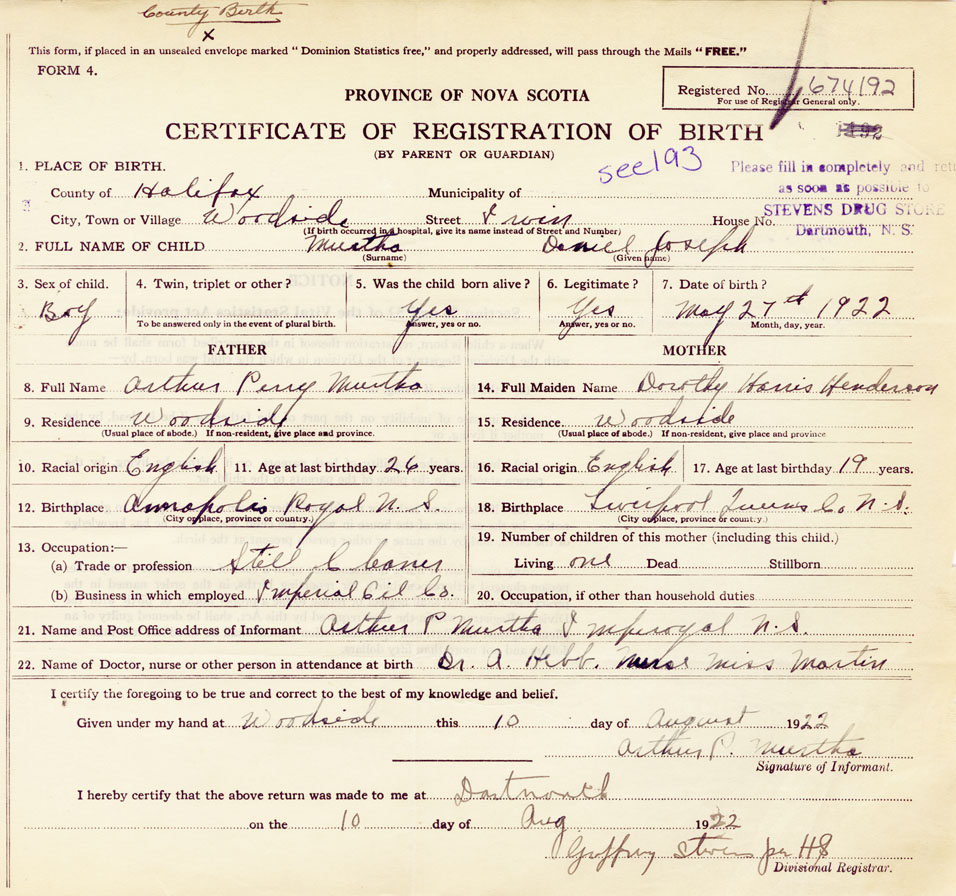 County Birth
x
This form, if placed in an unsealed envelope marked "Dominion Statistics free," and properly addressed, will pass through the Mails "FREE."
FORM 4.
Registered No. 674192
For use of Registrar General only.
PROVINCE OF NOVA SCOTIA
CERTIFICATE OF REGISTRATION OF BIRTH
(BY PARENT OR GUARDIAN)
see 193
Please fill in completely and
as soon as possible to
STEVENS DRUG STORE
Dartmouth, N. S.
1. PLACE OF BIRTH.
County of Halifax Municipality of
City, Town or Village Woodside Street Irwin House No.
(If birth occurred in a hospital, give its name instead of Street and Number)
2. FULL NAME OF CHILD Murtha Daniel Joseph
(Surname) (Given name)
3. Sex of child. 4. Twin, triplet or other? 5. Was the child born alive? 6. Legitimate? 7. Date of birth?
Boy Yes Yes May 27th 1922
To be answered only in the event of plural birth. Answer, yes or no. Answer, yes or no. Month, day, year.
FATHER MOTHER
8. Full Name Arthur Perry Murtha 14. Full Maiden Name Dorothy Harris Henderson
9. Residence Woodside 15. Residence Woodside
(Usual place of abode.) If non-resident, give place and province. (Usual place of abode.) If non-resident, give place and province
10. Racial origin English 11. Age at last birthday 26 years. 16. Racial origin English 17. Age at last birthday 19 years.
12. Birthplace Annapolis Royal N.S. 18. Birthplace Liverpool Queens Co N.S.
(City or place, province or country.) (City or place, province or country.)
13. Occupation:— 19. Number of children of this mother (including this child.)
(a) Trade or profession Still Cleaner Living one Dead Stillborn
(b) Business in which employed Imperial Oil Co. 20. Occupation, if other than household duties
21. Name and Post Office address of Informant Arthur P Murtha Imperoyal N.S.
22. Name of Doctor, nurse or other person in attendance at birth Dr. A. Hebb. Nurse Miss Martin
I certify the foregoing to be true and correct to the best of my knowledge and belief.
Given under my hand at Woodside this 10 day of August 1922
Arthur P. Murtha
Signature of Informant.
I hereby certify that the above return was made to me at Dartmouth
on the 10 day of Aug 1922
Geoffrey Stevens per HS
Divisional Registrar.